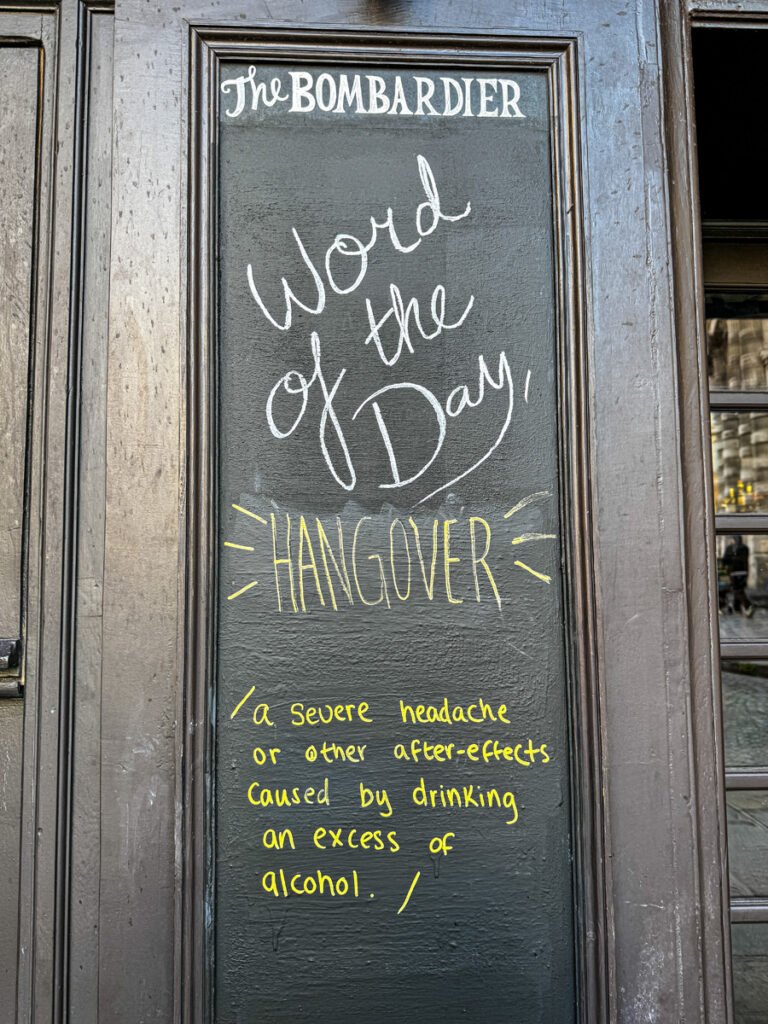 The BOMBARDIER
Word
of the
Day,
HANGOVER
/a severe headache
or other after-effects
caused by drinking
an excess of
alcohol. /